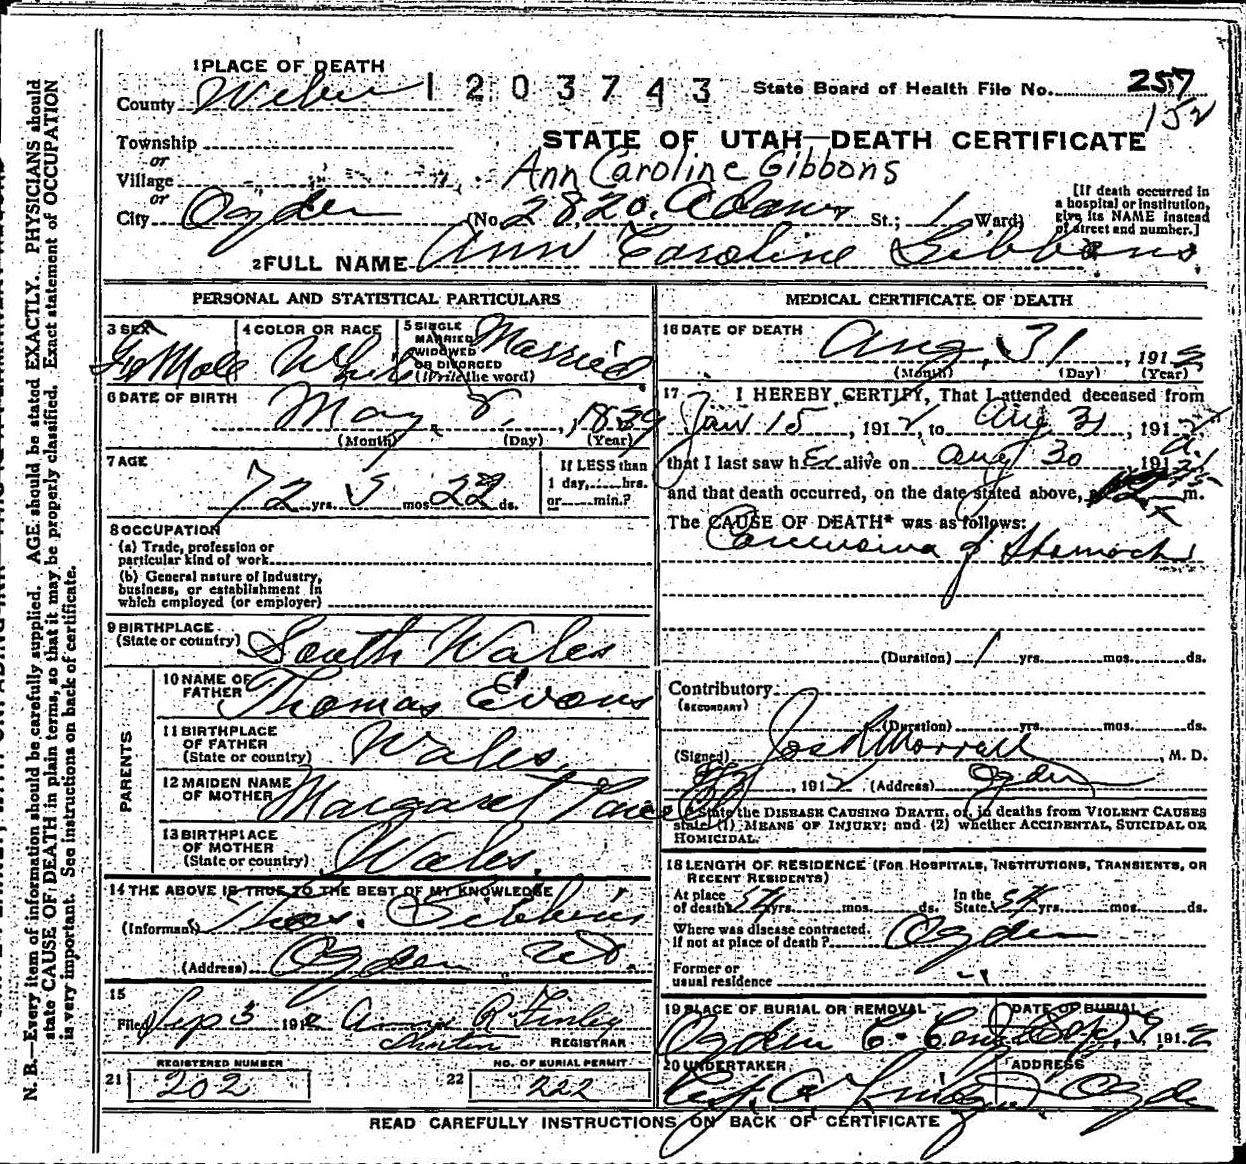 1 PLACE OF DEATH
County Weber
1 2 0 3 7 4 3
State Board of Health File No. 257
152
Township
or
Village
or
City Ogden
STATE OF UTAH—DEATH CERTIFICATE
Ann Caroline Gibbons
(No. 2820. Adams St.; 1 Ward)
[If death occurred in
a hospital or institution,
give its NAME instead
of street and number.]
2 FULL NAME Ann Caroline Gibbons.
PERSONAL AND STATISTICAL PARTICULARS
3 SEX
FeMale
4 COLOR OR RACE
White
5 SINGLE
MARRIED
WIDOWED
OR DIVORCED
(Write the word)
Married
6 DATE OF BIRTH
May 8, 1839
(Month) (Day) (Year)
7 AGE
72 yrs. 3 mos. 22 ds.
If LESS than
1 day, hrs.
or min.?
8 OCCUPATION
(a) Trade, profession or
particular kind of work
(b) General nature of industry,
business, or establishment in
which employed (or employer)
9 BIRTHPLACE
(State or country) South Wales
PARENTS
10 NAME OF
FATHER Thomas Evans
11 BIRTHPLACE
OF FATHER
(State or country) Wales.
12 MAIDEN NAME
OF MOTHER Margaret
13 BIRTHPLACE
OF MOTHER
(State or country) Wales.
14 THE ABOVE IS TRUE TO THE BEST OF MY KNOWLEDGE
(Informant) Thos. Gibbons
(Address) Ogden Ut.
15
Filed Sep 3 1912 Anna R. Finley
REGISTRAR
REGISTERED NUMBER
21 202
NO. OF BURIAL PERMIT
22 222
MEDICAL CERTIFICATE OF DEATH
16 DATE OF DEATH
Aug. 31, 1912
(Month) (Day) (Year)
17 I HEREBY CERTIFY, That I attended deceased from
Jan 15, 1912, to Aug 31, 1912
that I last saw her alive on Aug 30 191
and that death occurred, on the date stated above, m.
The CAUSE OF DEATH* was as follows:
Carcinoma of Stomach
(Duration) 1 yrs. mos. ds.
Contributory
(SECONDARY)
(Duration) yrs. mos. ds.
(Signed) Jos R Morrell, M. D.
, 1912 (Address) Ogden
*State the DISEASE CAUSING DEATH, or, in deaths from VIOLENT CAUSES
state (1) MEANS OF INJURY; and (2) whether ACCIDENTAL, SUICIDAL OR
HOMICIDAL.
18 LENGTH OF RESIDENCE (FOR HOSPITALS, INSTITUTIONS, TRANSIENTS, OR
RECENT RESIDENTS)
At place
of death 54 yrs. mos. ds.
In the
State 54 yrs. mos. ds.
Where was disease contracted,
if not at place of death? Ogden
Former or
usual residence
19 PLACE OF BURIAL OR REMOVAL
Ogden C. Cem
DATE OF BURIAL
Sep. 3, 1912
20 UNDERTAKER
ADDRESS
Ogden
READ CAREFULLY INSTRUCTIONS ON BACK OF CERTIFICATE
N. B.—Every item of information should be carefully supplied. AGE should be stated EXACTLY. PHYSICIANS should
state CAUSE OF DEATH in plain terms, so that it may be properly classified. Exact statement of OCCUPATION
is very important. See instructions on back of certificate.